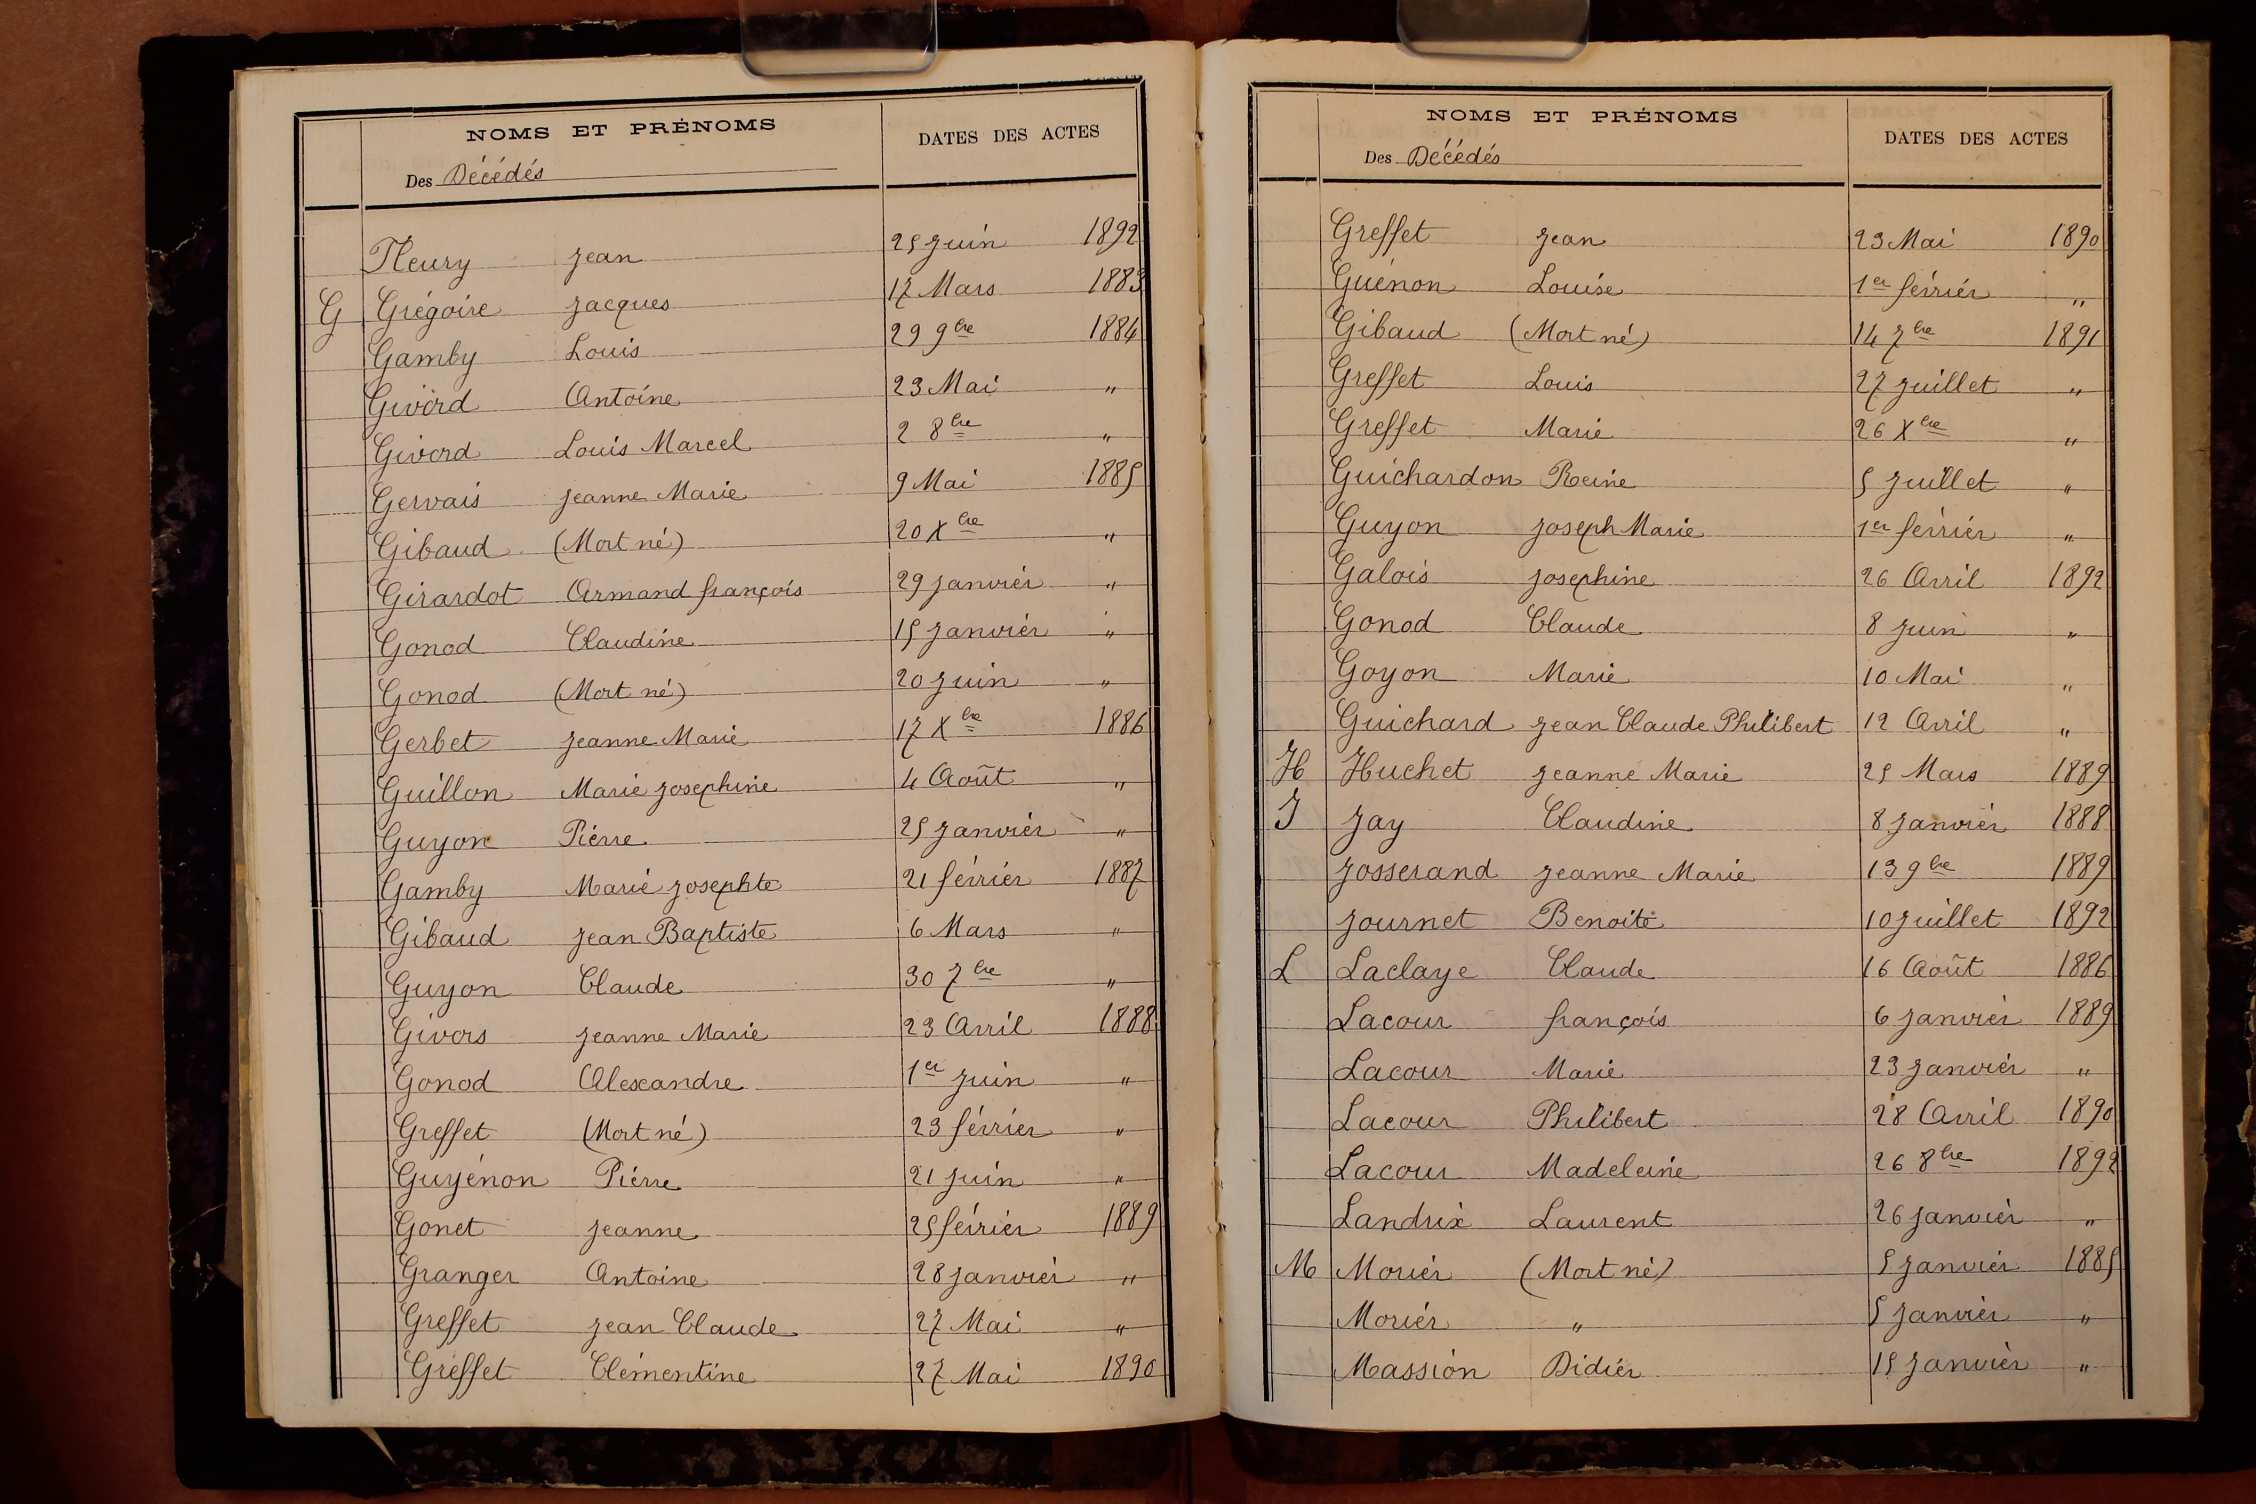 NOMS ET PRÉNOMS DATES DES ACTES
Des Décédés
Fleury Jean 25 Juin 1892
G Grégoire Jacques 17 Mars 1883
Gamby Louis 29 9bre 1884
Givord Antoine 23 Mai "
Givord Louis Marcel 2 8bre "
Gervais Jeanne Marie 9 Mai 1885
Gibaud (Mort né) 20 Xbre "
Girardot Armand françois 29 Janvier "
Gonod Claudine 15 Janvier "
Gonod (Mort né) 20 Juin "
Gerbet Jeanne Marie 17 Xbre 1886
Guillon Marie Josephine 4 Août "
Guyon Pierre 25 Janvier "
Gamby Marie Josephte 21 février 1887
Gibaud Jean Baptiste 6 Mars "
Guyon Claude 30 7bre "
Givors Jeanne Marie 23 Avril 1888
Gonod Alexandre 1er Juin "
Greffet (Mort né) 23 février "
Guyénon Pierre 21 Juin "
Gonet Jeanne 25 février 1889
Granger Antoine 28 Janvier "
Greffet Jean Claude 27 Mai "
Greffet Clémentine 27 Mai 1890
NOMS ET PRÉNOMS DATES DES ACTES
Des Décédés
Greffet Jean 23 Mai 1890
Guénon Louise 1er février "
Gibaud (Mort né) 14 7bre 1891
Greffet Louis 27 Juillet "
Greffet Marie 26 Xbre "
Guichardon Reine 5 Juillet "
Guyon Joseph Marie 1er février "
Galois Josephine 26 Avril 1892
Gonod Claude 8 Juin "
Goyon Marie 10 Mai "
Guichard Jean Claude Philibert 12 Avril "
H Huchet Jeanne Marie 25 Mars 1889
J Jay Claudine 8 Janvier 1888
Josserand Jeanne Marie 13 9bre 1889
Journet Benoite 10 Juillet 1892
L Laclaye Claude 16 Août 1886
Lacour françois 6 Janvier 1889
Lacour Marie 23 Janvier "
Lacour Philibert 28 Avril 1890
Lacour Madeleine 26 8bre 1892
Landrix Laurent 26 Janvier "
M Morier (Mort né) 5 Janvier 1885
Morier " 5 Janvier "
Massion Didier 15 Janvier "